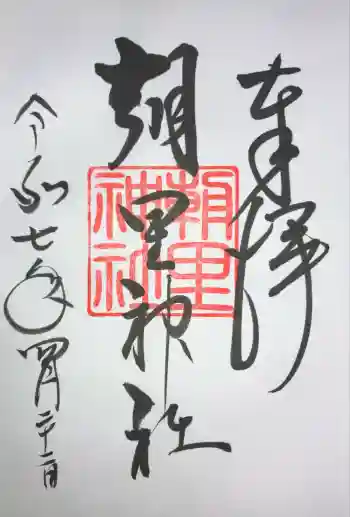 奉拝
朝里神社
朝里神社
令和七年四月二十二日